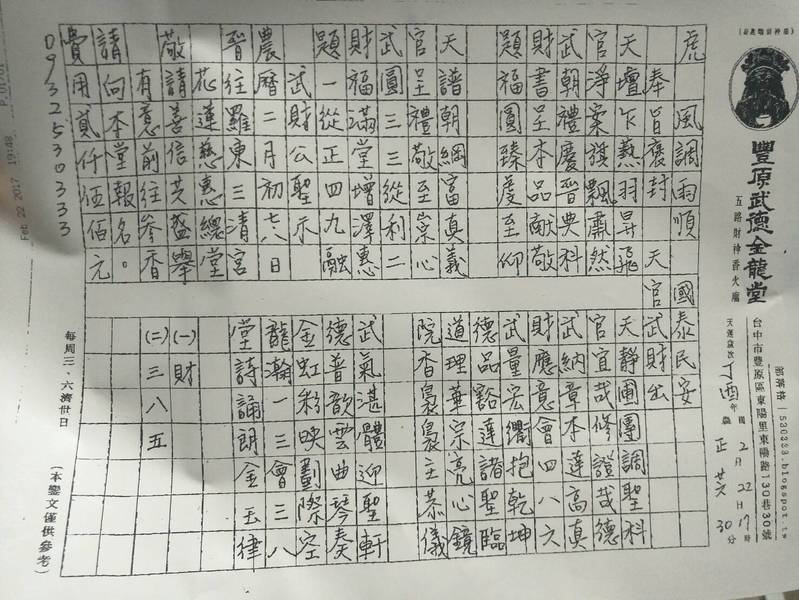 豐原武德金龍堂
五路財神香火廟
台中市豐原區東陽里東陽路130巷30號
部落格 | 530333.blogspot.tw
天運歲次丁酉年
國2月22日17時
農正廿六30分
虎 風調雨順 國泰民安
奉旨褒封 天官武財出
天壇下熱羽昇飛
官淨案旗飄肅然
武朝禮慶晉典科
財書呈本品獻敬
題福圓臻虔至仰
天譜朝綱富真義
官呈禮敬至崇心
武圓三三從利二
財福滿堂增澤惠
題一從正四九融
武財公聖示
農曆二月初七八日
晉往羅東三清宮
花蓮慈惠總堂
敬請善信共盛舉
有意前往參香
請向本堂報名。
費用貳仟伍佰元
0932530333
天靜圃團調聖科
官宜哉修證哉德
武納章本達高真
財應意會四八六
武量宏衢抱乾坤
德品豁達諸聖臨
道理華宗亮心鏡
院香裊裊主恭儀
武氣湛體迎聖軒
德普歆雲曲琴奏
金虹彩映劃際空
龍瀚一三會三八
堂詩誦朗金玉律
(一)財
(二)三八五
每周三、六濟世日
(本鑾文僅供參考)
Feb 22 2017 19:48
P.01/01